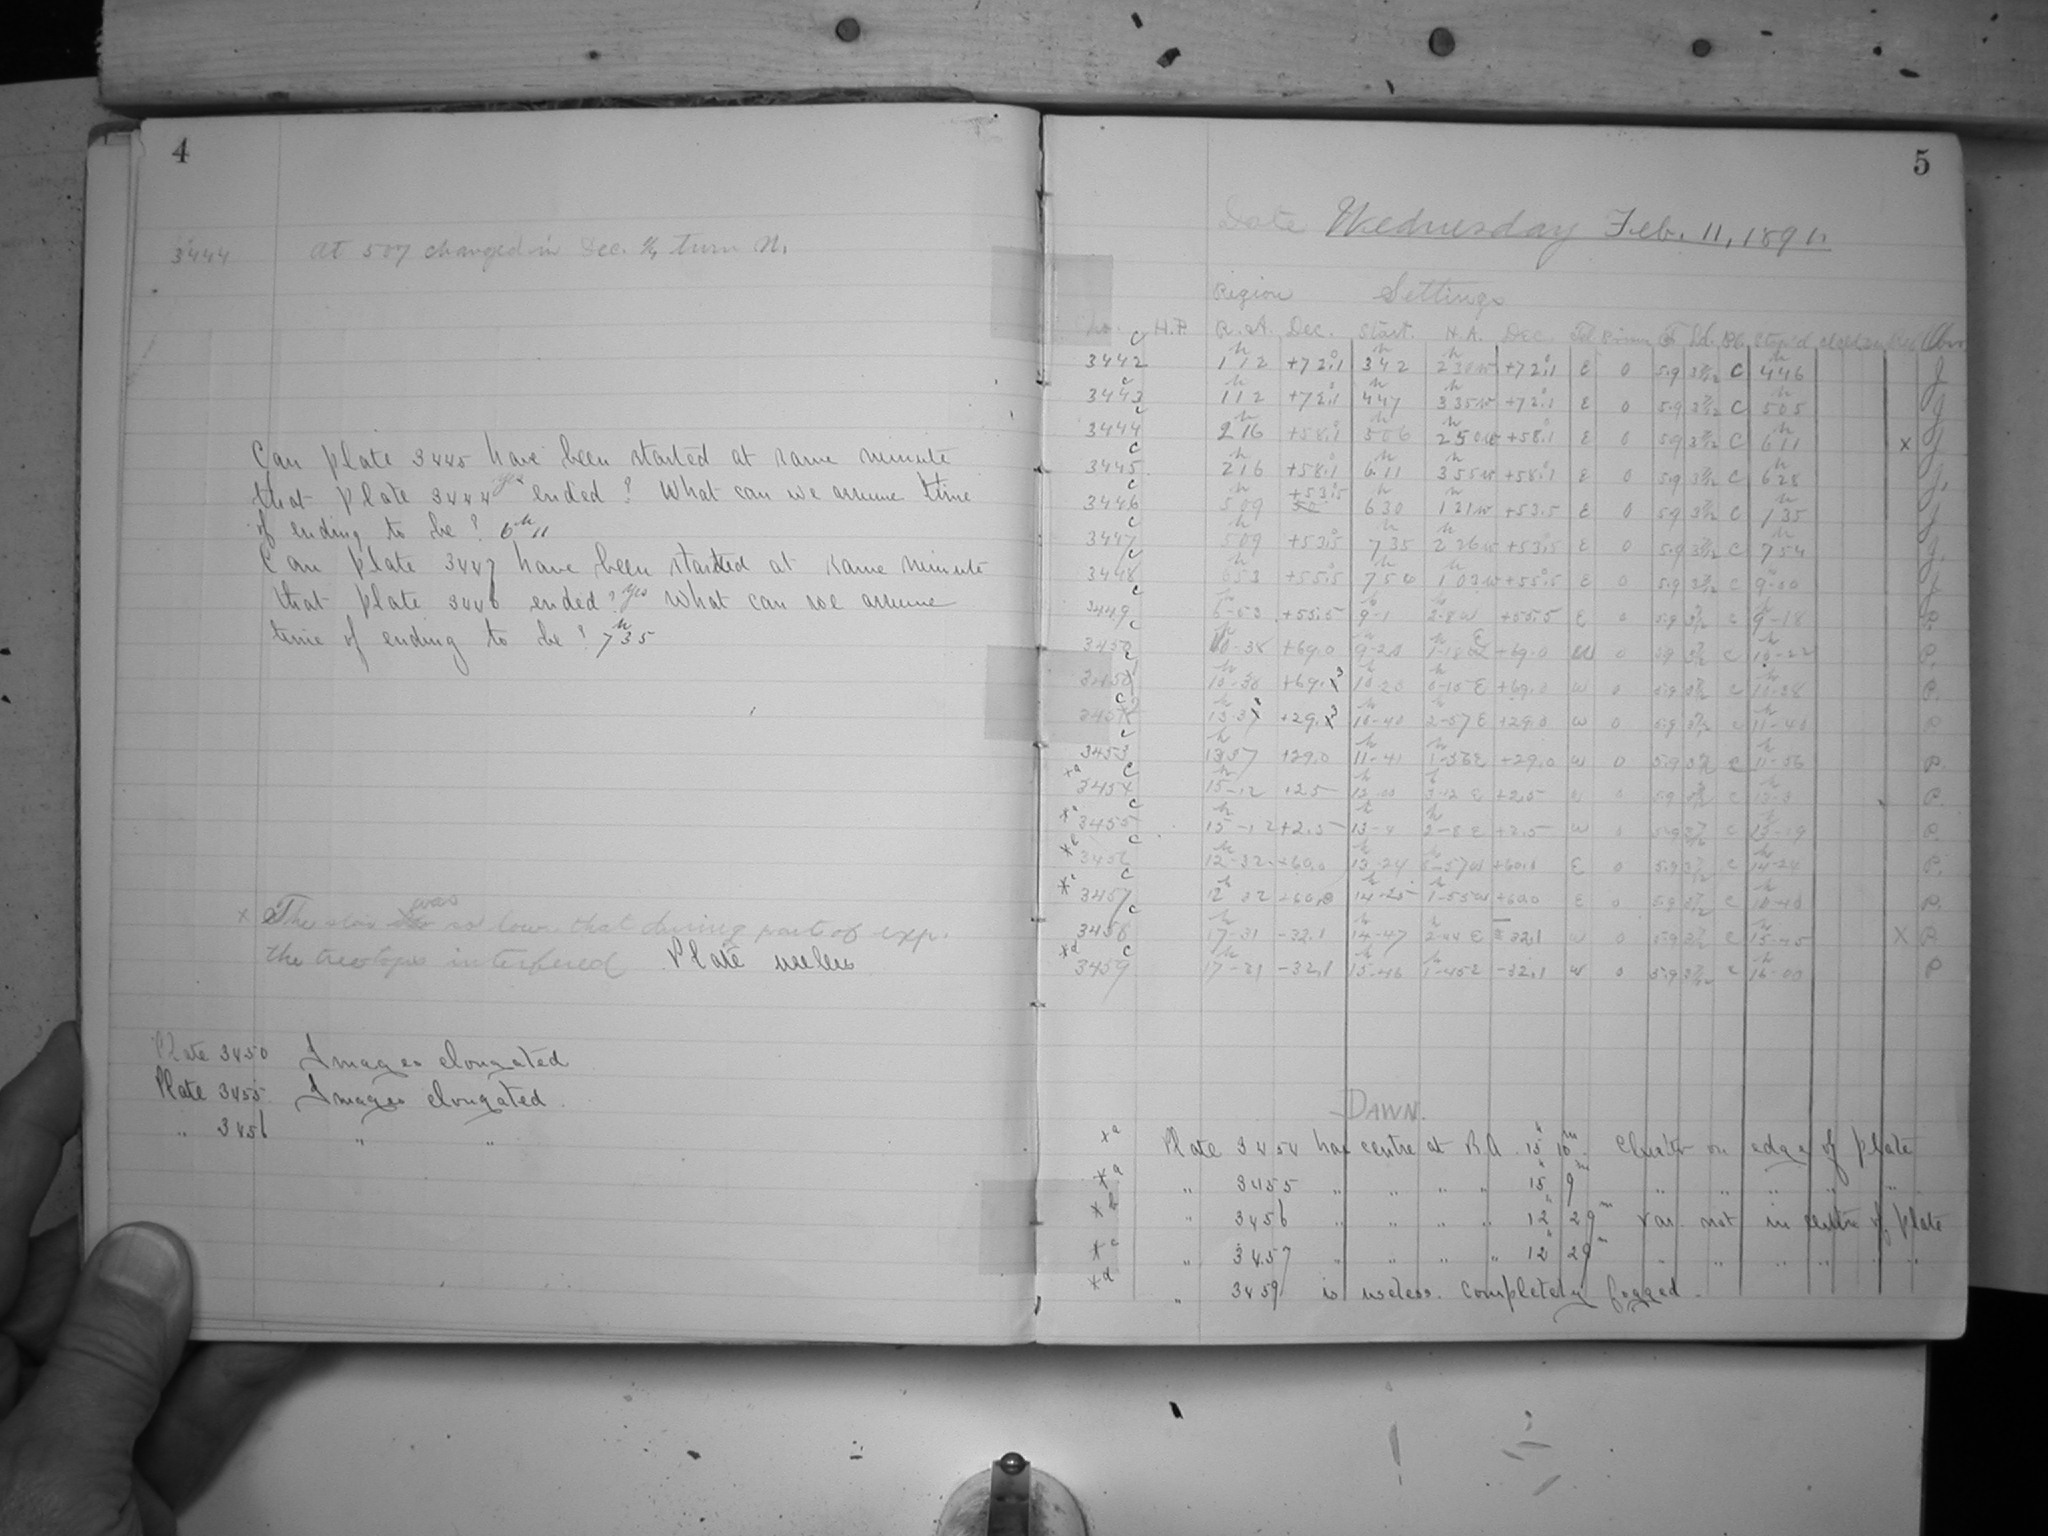 4
3444 At 507 changed in Dec. ¼ turn N.
Can plate 3445 have been started at same minute
that plate 3444 ended? yes What can we assume time
of ending to be? 6h 11
Can plate 3447 have been started at same minute
that plate 3446 ended? yes What can we assume
time of ending to be? 7h 35
x The star was so low that during part of exp.
the treetops interfered Plate useless
Plate 3450 Images elongated
Plate 3455 Images elongated.
" 3456 " "
5
Date Wednesday Feb. 11, 1891.
Region Settings
No. H.P. R.A. Dec. Start. H.A. Dec.
3442 c 1h12 +72°.1 3h42 2h30w +72°.1 E 0 5.9 C 4h46 J
3443 c 1h12 +72°.1 4h47 3h35w +72°.1 E 0 5.9 C 5h05 J
3444 c 2h16 +58°.1 5h06 2h50w +58°.1 E 0 5.9 C 6h11 x J
3445 c 2h16 +58°.1 6h11 3h55w +58°.1 E 0 5.9 C 6h28 J.
3446 c 5h09 +53°.5 6h30 1h21w +53.5 E 0 5.9 C J
3447 c 5h09 +53°.5 7h35 2h26w +53°.5 E 0 5.9 C 7h54 J.
3448 c 6h53 +55°.5 7h56 1h03w +55°.5 E 0 5.9 C J
3449 c 6h-53 +55.5 9h-1 2-8w +55.5 E 0 5.9 c 9h-18 P.
3450 c 10h-38 +69.0 9h-20 1h-18 E +69.0 w 0 5.9 c 10h-22 P.
+69. E +69.0 w 0 5.9 c 10h-38 P.
c +29. 10h-40 2h-57 E +29.0 w 0 5.9 c P
3453 c 13h37 +29.0 11h-41 1h-56E +29.0 w 0 5.9 c 11h-56 P.
xa 3454 c 15h-12 +2.5 E +2.5 0 5.9 c P.
xa 3455 c 15h-12 +2.5 13h-4 2h-8 E +2.5 w 0 5.9 c P.
3456 c 12h-32 +60.0 13h-24 0h-57w E 0 5.9 c 14h-24 P.
3457 c 12h-32 +60.0 14h-25 1h-55w +60.0 E 0 5.9 c P.
3458 c 17h-31 -32.1 14h-47 2h-44 E -32.1 w 0 5.9 c 15h-45 x P
xd 3459 c 17h-31 -32.1 15h-46 1h-45E -32.1 w 0 5.9 c 16h-00 P
DAWN.
xa Plate 3454 has centre at RA 15h 10m. Cluster on edge of plate
xa " 3455 " " " " 15h 9m " " " " "
xb " 3456 " " " " 12h 29m var. not in centre of plate
xc " 3457 " " " " 12h 29m " " " " " "
xd " 3459 is useless. Completely fogged.